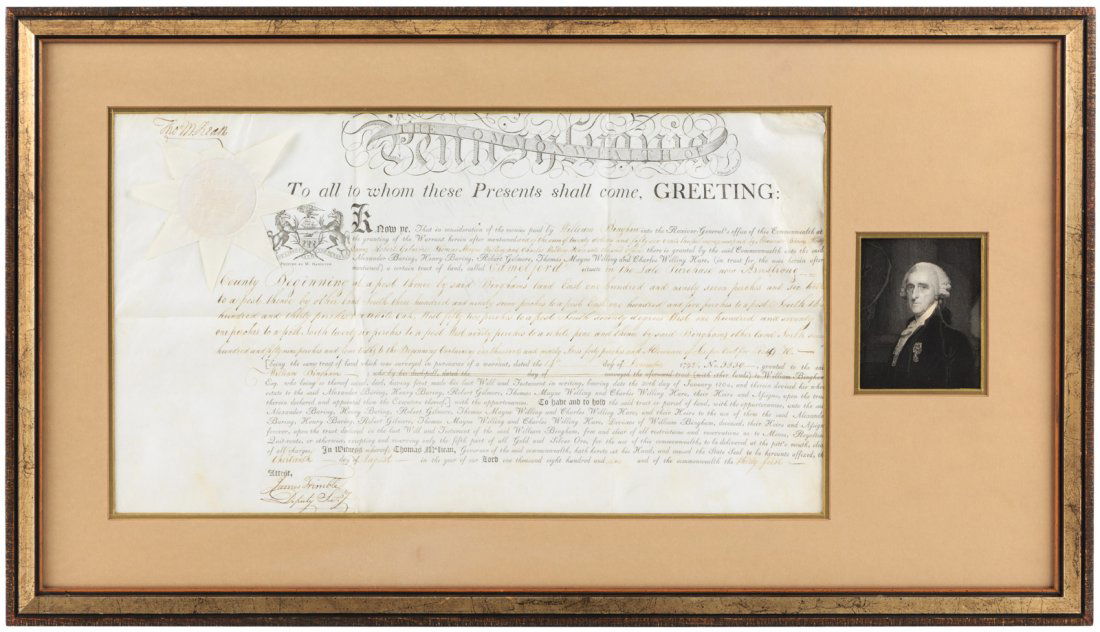 Tho M:Kean
THE COMMONWEALTH
Pennsylvania
To all to whom these Presents shall come, GREETING:
Know ye, That in consideration of the monies paid by William Bingham into the Receiver General's office of this Commonwealth at
the granting of the Warrant herein after mentioned and of the sum of twenty dollars and
there is granted by the said Commonwealth unto the said
Alexander Baring, Henry Baring, Robert Gilmore, Thomas Mayne Willing and Charles Willing Hare, (in trust for the uses herein after
mentioned) a certain tract of land, called situate in the Late Purchase now Armstrong
PRINTED BY W. HAMILTON
County Beginning at a post thence by said Binghams land East one hundred and ninety seven perches and six tenths
to a post thence by other land South three hundred and ninety seven perches to a post East one hundred and five perches to a post South
hundred and thirty perches to a white oak, West fifty two perches to a post South seventy degrees West one hundred and seventy
one perches to a post, North twenty six perches to a post West ninety perches to a white pine and thence by said Binghams other land North
hundred and fifty nine perches and four tenths to the Beginning Containing one thousand and ninety Acres forty perches and Allowance of six per Cent for roads &c.
(being the same tract of land which was surveyed in pursuance of a warrant, dated the day of 1792, No. granted to the said
William Bingham who by his deed poll, dated the day of conveyed the aforesaid tract (with other lands) to William Bingham
Esq. who being so thereof seized, hath, having first made his last Will and Testament in writing, bearing date the 30th day of January 1804, and therein devised her whole
estate to the said Alexander Baring, Henry Baring, Robert Gilmore, Thomas Mayne Willing and Charles Willing Hare, their Heirs and Assigns, upon the trusts
therein declared, and appointed also the Executors thereof,) with the appurtenances. To have and to hold the said tract or parcel of land, with the appurtenances, unto the said
Alexander Baring, Henry Baring, Robert Gilmore, Thomas Mayne Willing and Charles Willing Hare, and their Heirs to the use of them the said Alexander
Baring, Henry Baring, Robert Gilmore, Thomas Mayne Willing and Charles Willing Hare, Devisees of William Bingham, deceased, their Heirs and Assigns
forever, upon the trusts declared in the last Will and Testament of the said William Bingham, free and clear of all restrictions and reservations as to Mines, Royalties
Quit-rents, or otherwise, excepting and reserving only the fifth part of all Gold and Silver Ore, for the use of this commonwealth, to be delivered at the pitt's mouth, clear
of all charges. In Witness whereof, Thomas M'Kean, Governor of the said commonwealth, hath hereto set his Hand, and caused the State Seal to be hereunto affixed, the
thirteenth day of August in the year of our Lord one thousand eight hundred and six and of the commonwealth the thirty first
Attest,
James Trimble
Deputy Secy